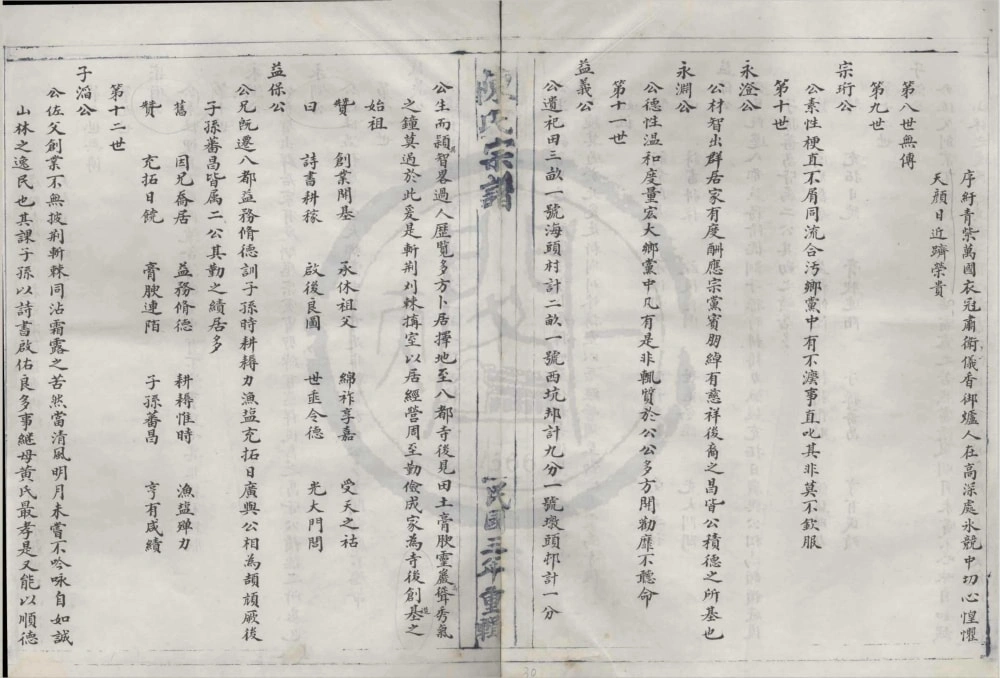 序紆青紫萬國衣冠肅衛儀香御爐人在高深處氷競中切心惶懼
天顏日近躋榮貴
第八世無傳
第九世
宗珩公
公素性梗直不屑同流合污鄉黨中有不湥事直叱其非莫不欽服
第十世
永澄公
公材智出群居家有度酬應宗黨賓朋綽有慈祥後裔之昌皆公積德之所基也
永澗公
公德性温和度量宏大鄉黨中凡有是非輒質於公公多方開勸靡不聽命
第十一世
益義公
公遺祀田三畝一號海頭村計二畝一號西坑邦計九分一號墩頭邦計一分
陳氏宗譜
民國三年重輯
公生而頴智畧過人歷覽多方卜居擇地至八都寺後見田土膏腴靈巖聳秀氣
之鐘莫過於此爰是斬荆刈棘搆室以居經營周至勤儉成家為寺後創基之
始祖
贊 創業開基 承休祖父 綿祚享嘉 受天之祜
曰 詩書耕稼 啟後良圖 世垂令德 光大門閭
益保公
公兄旣遷八都益務脩德訓子孫時耕耨力漁塩充拓日廣與公相為頡頏厥後
子孫蕃昌皆属二公其勤之績居多
舊 因兄喬居 益務脩德 耕耨惟時 漁塩殫力
贊 充拓日饒 膏腴連陌 子孫蕃昌 亨有成績
第十二世
子滔公
公佐父創業不無披荆斬棘同沾霜露之苦然當清風明月未嘗不吟咏自如誠
山林之逸民也其課子孫以詩書啟佑良多事継母黄氏最孝是又能以順德